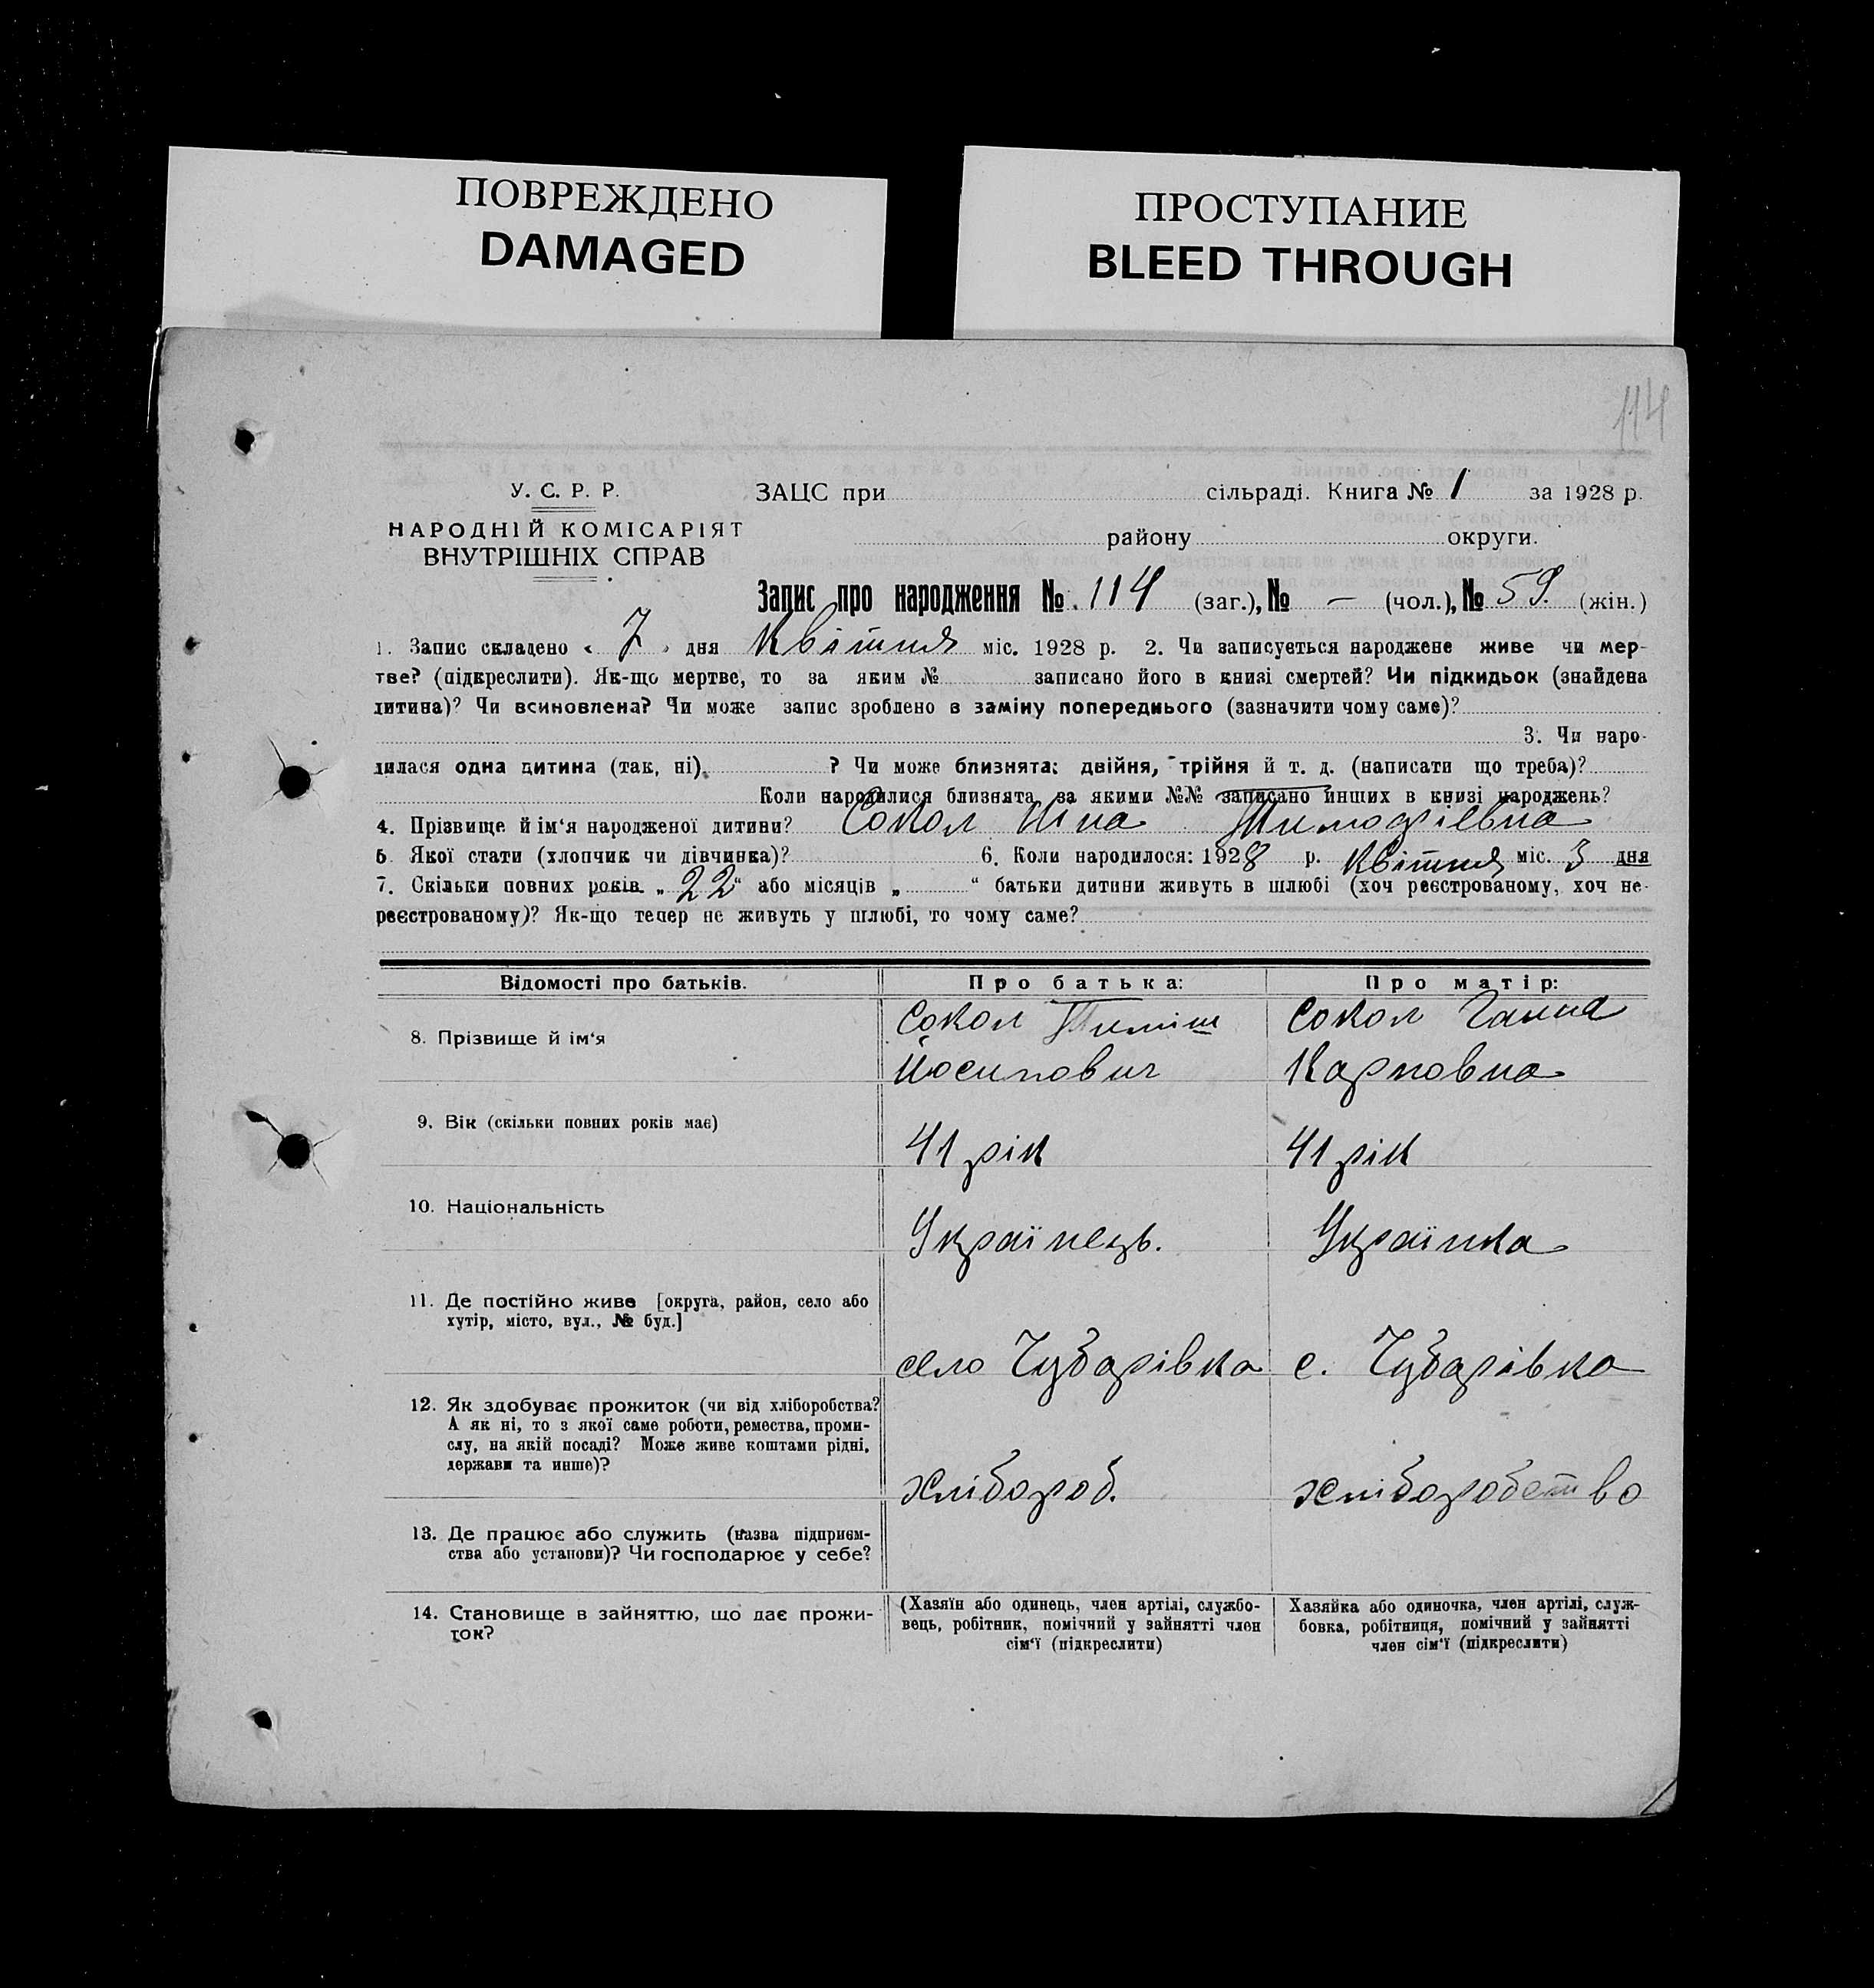 ПОВРЕЖДЕНО
DAMAGED
ПРОСТУПАНИЕ
BLEED THROUGH
114
У. С. Р. Р.
НАРОДНІЙ КОМІСАРІЯТ
ВНУТРІШНІХ СПРАВ
ЗАЦС при сільраді. Книга № 1 за 1928 р.
району округи.
Запис про народження № 114 (заг.), № — (чол.), № 59. (жін.)
1. Запис складено « 7 » дня Квітня міс. 1928 р. 2. Чи записується народжене живе чи мер-
тве? (підкреслити). Як-що мертве, то за яким № записано його в книзі смертей? Чи підкидьок (знайдена
дитина)? Чи всиновлена? Чи може запис зроблено в заміну попереднього (зазначити чому саме)?
3. Чи наро-
дилася одна дитина (так, ні) ? Чи може близнята: двійня, трійня й т. д. (написати що треба)?
Коли народилися близнята, за якими №№ записано инших в книзі народжень?
4. Прізвище й ім'я народженої дитини? Сокол Ніна Тимофіевна
5. Якої стати (хлопчик чи дівчинка)? 6. Коли народилося: 1928 р. Квітня міс. 3 дня
7. Скільки повних років „ 22 “ або місяців „ “ батьки дитини живуть в шлюбі (хоч реєстрованому, хоч не-
реєстрованому)? Як-що тепер не живуть у шлюбі, то чому саме?
Відомості про батьків. Про батька: Про матір:
8. Прізвище й ім'я
Сокол Тиміш
Йосипович
Сокол Ганна
Карповна
9. Вік (скільки повних років має)
41 рік
41 рік
10. Національність
Українець.
Українка
11. Де постійно живе [округа, район, село або
хутір, місто, вул., № буд.]
село Чубарівка
с. Чубарівка
12. Як здобуває прожиток (чи від хліборобства?
А як ні, то з якої саме роботи, ремества, проми-
слу, на якій посаді? Може живе коштами рідні,
держави та инше)?
хлібороб.
хліборобство
13. Де працює або служить (назва підприєм-
ства або установи)? Чи господарює у себе?
14. Становище в зайняттю, що дає прожи-
ток?
(Хазяїн або одинець, член артілі, службо-
вець, робітник, помічний у зайнятті член
сім'ї (підкреслити)
Хазяйка або одиночка, член артілі, служ-
бовка, робітниця, помічний у зайнятті
член сім'ї (підкреслити)